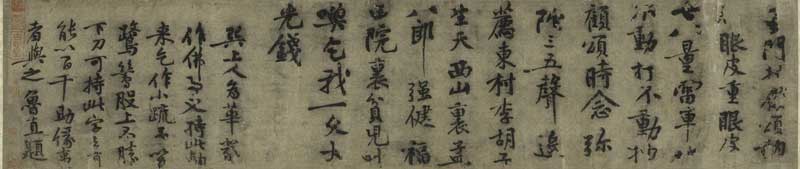 門
眼皮重眼皮
八量雷車
不動打不動
顧頌時念彌
陀三五聲追
薦東村李胡子
生天西山裏孟
八郎強健福
田院裏貧兒叫
喚乞我一文大
光錢
上人為華嚴
作佛事又持此
來乞作小疏不
鷺鷥股上不
下刀可持此字
能以百千助緣
者與之魯直題